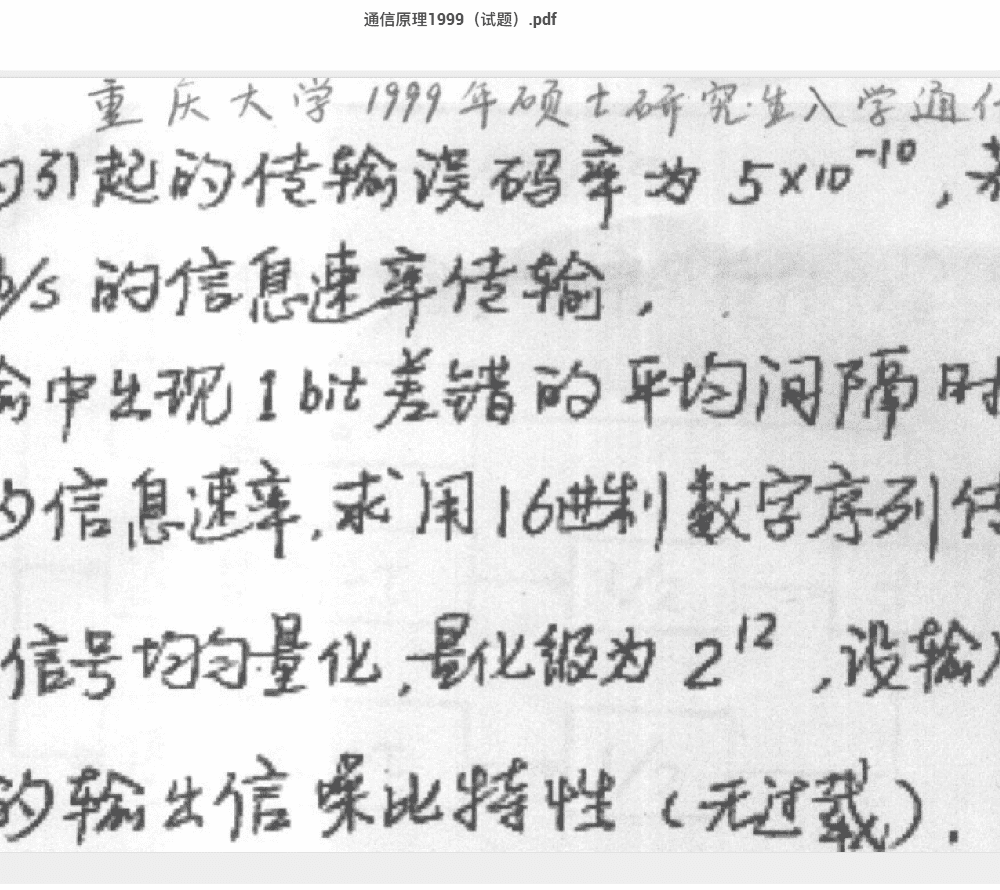 通信原理1999（试题）.pdf
重庆大学1999年硕士研究生入学通信
引起的传输误码率为 5×10⁻¹⁰,若
b/s 的信息速率传输.
输中出现 1 bit 差错的平均间隔时
的信息速率,求用16进制数字序列传
信号均匀量化,量化级为 2¹²,设输入
的输出信噪比特性（无过载）.